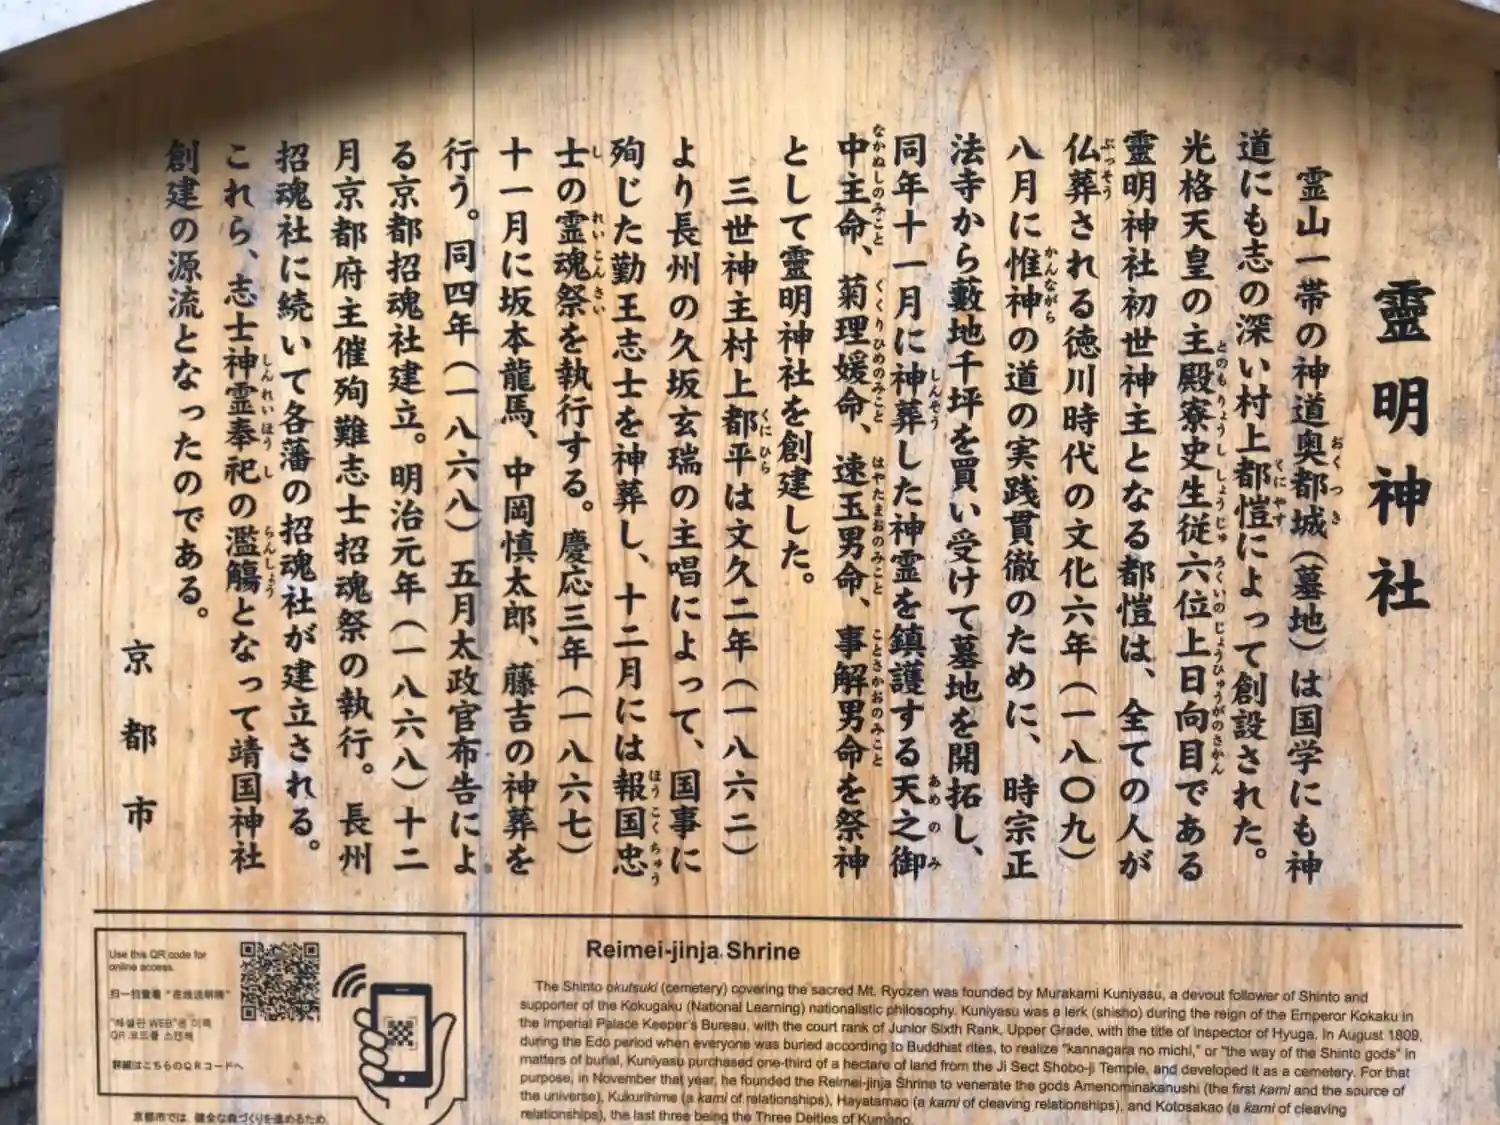 靈明神社
霊山一帯の神道奥都城（墓地）は国学にも神
道にも志の深い村上都愷によって創設された。
光格天皇の主殿寮史生従六位上日向目である
霊明神社初世神主となる都愷は、全ての人が
仏葬される徳川時代の文化六年（一八〇九）
八月に惟神の道の実践貫徹のために、時宗正
法寺から藪地千坪を買い受けて墓地を開拓し、
同年十一月に神葬した神霊を鎮護する天之御
中主命、菊理媛命、速玉男命、事解男命を祭神
として霊明神社を創建した。
三世神主村上都平は文久二年（一八六二）
より長州の久坂玄瑞の主唱によって、国事に
殉じた勤王志士を神葬し、十二月には報国忠
士の霊魂祭を執行する。慶応三年（一八六七）
十一月に坂本龍馬、中岡慎太郎、藤吉の神葬を
行う。同四年（一八六八）五月太政官布告によ
る京都招魂社建立。明治元年（一八六八）十二
月京都府主催殉難志士招魂祭の執行。長州
招魂社に続いて各藩の招魂社が建立される。
これら、志士神霊奉祀の濫觴となって靖国神社
創建の源流となったのである。
京都市
Use this QR code for
online access.
扫一扫查看“在线说明牌”
"해설판 WEB"은 이쪽
QR 코드를 스캔해
詳細はこちらのQRコードへ
京都市では、健全な森づくりを進めるため、
Reimei-jinja Shrine
The Shinto okutsuki (cemetery) covering the sacred Mt. Ryozen was founded by Murakami Kuniyasu, a devout follower of Shinto and
supporter of the Kokugaku (National Learning) nationalistic philosophy. Kuniyasu was a lerk (shisho) during the reign of the Emperor Kokaku in
the Imperial Palace Keeper's Bureau, with the court rank of Junior Sixth Rank, Upper Grade, with the title of Inspector of Hyuga. In August 1809,
during the Edo period when everyone was buried according to Buddhist rites, to realize "kannagara no michi," or "the way of the Shinto gods" in
matters of burial, Kuniyasu purchased one-third of a hectare of land from the Ji Sect Shobo-ji Temple, and developed it as a cemetery. For that
purpose, in November that year, he founded the Reimei-jinja Shrine to venerate the gods Amenominakanushi (the first kami and the source of
the universe), Kukurihime (a kami of relationships), Hayatamao (a kami of cleaving relationships), and Kotosakao (a kami of cleaving
relationships), the last three being the Three Deities of Kumano.